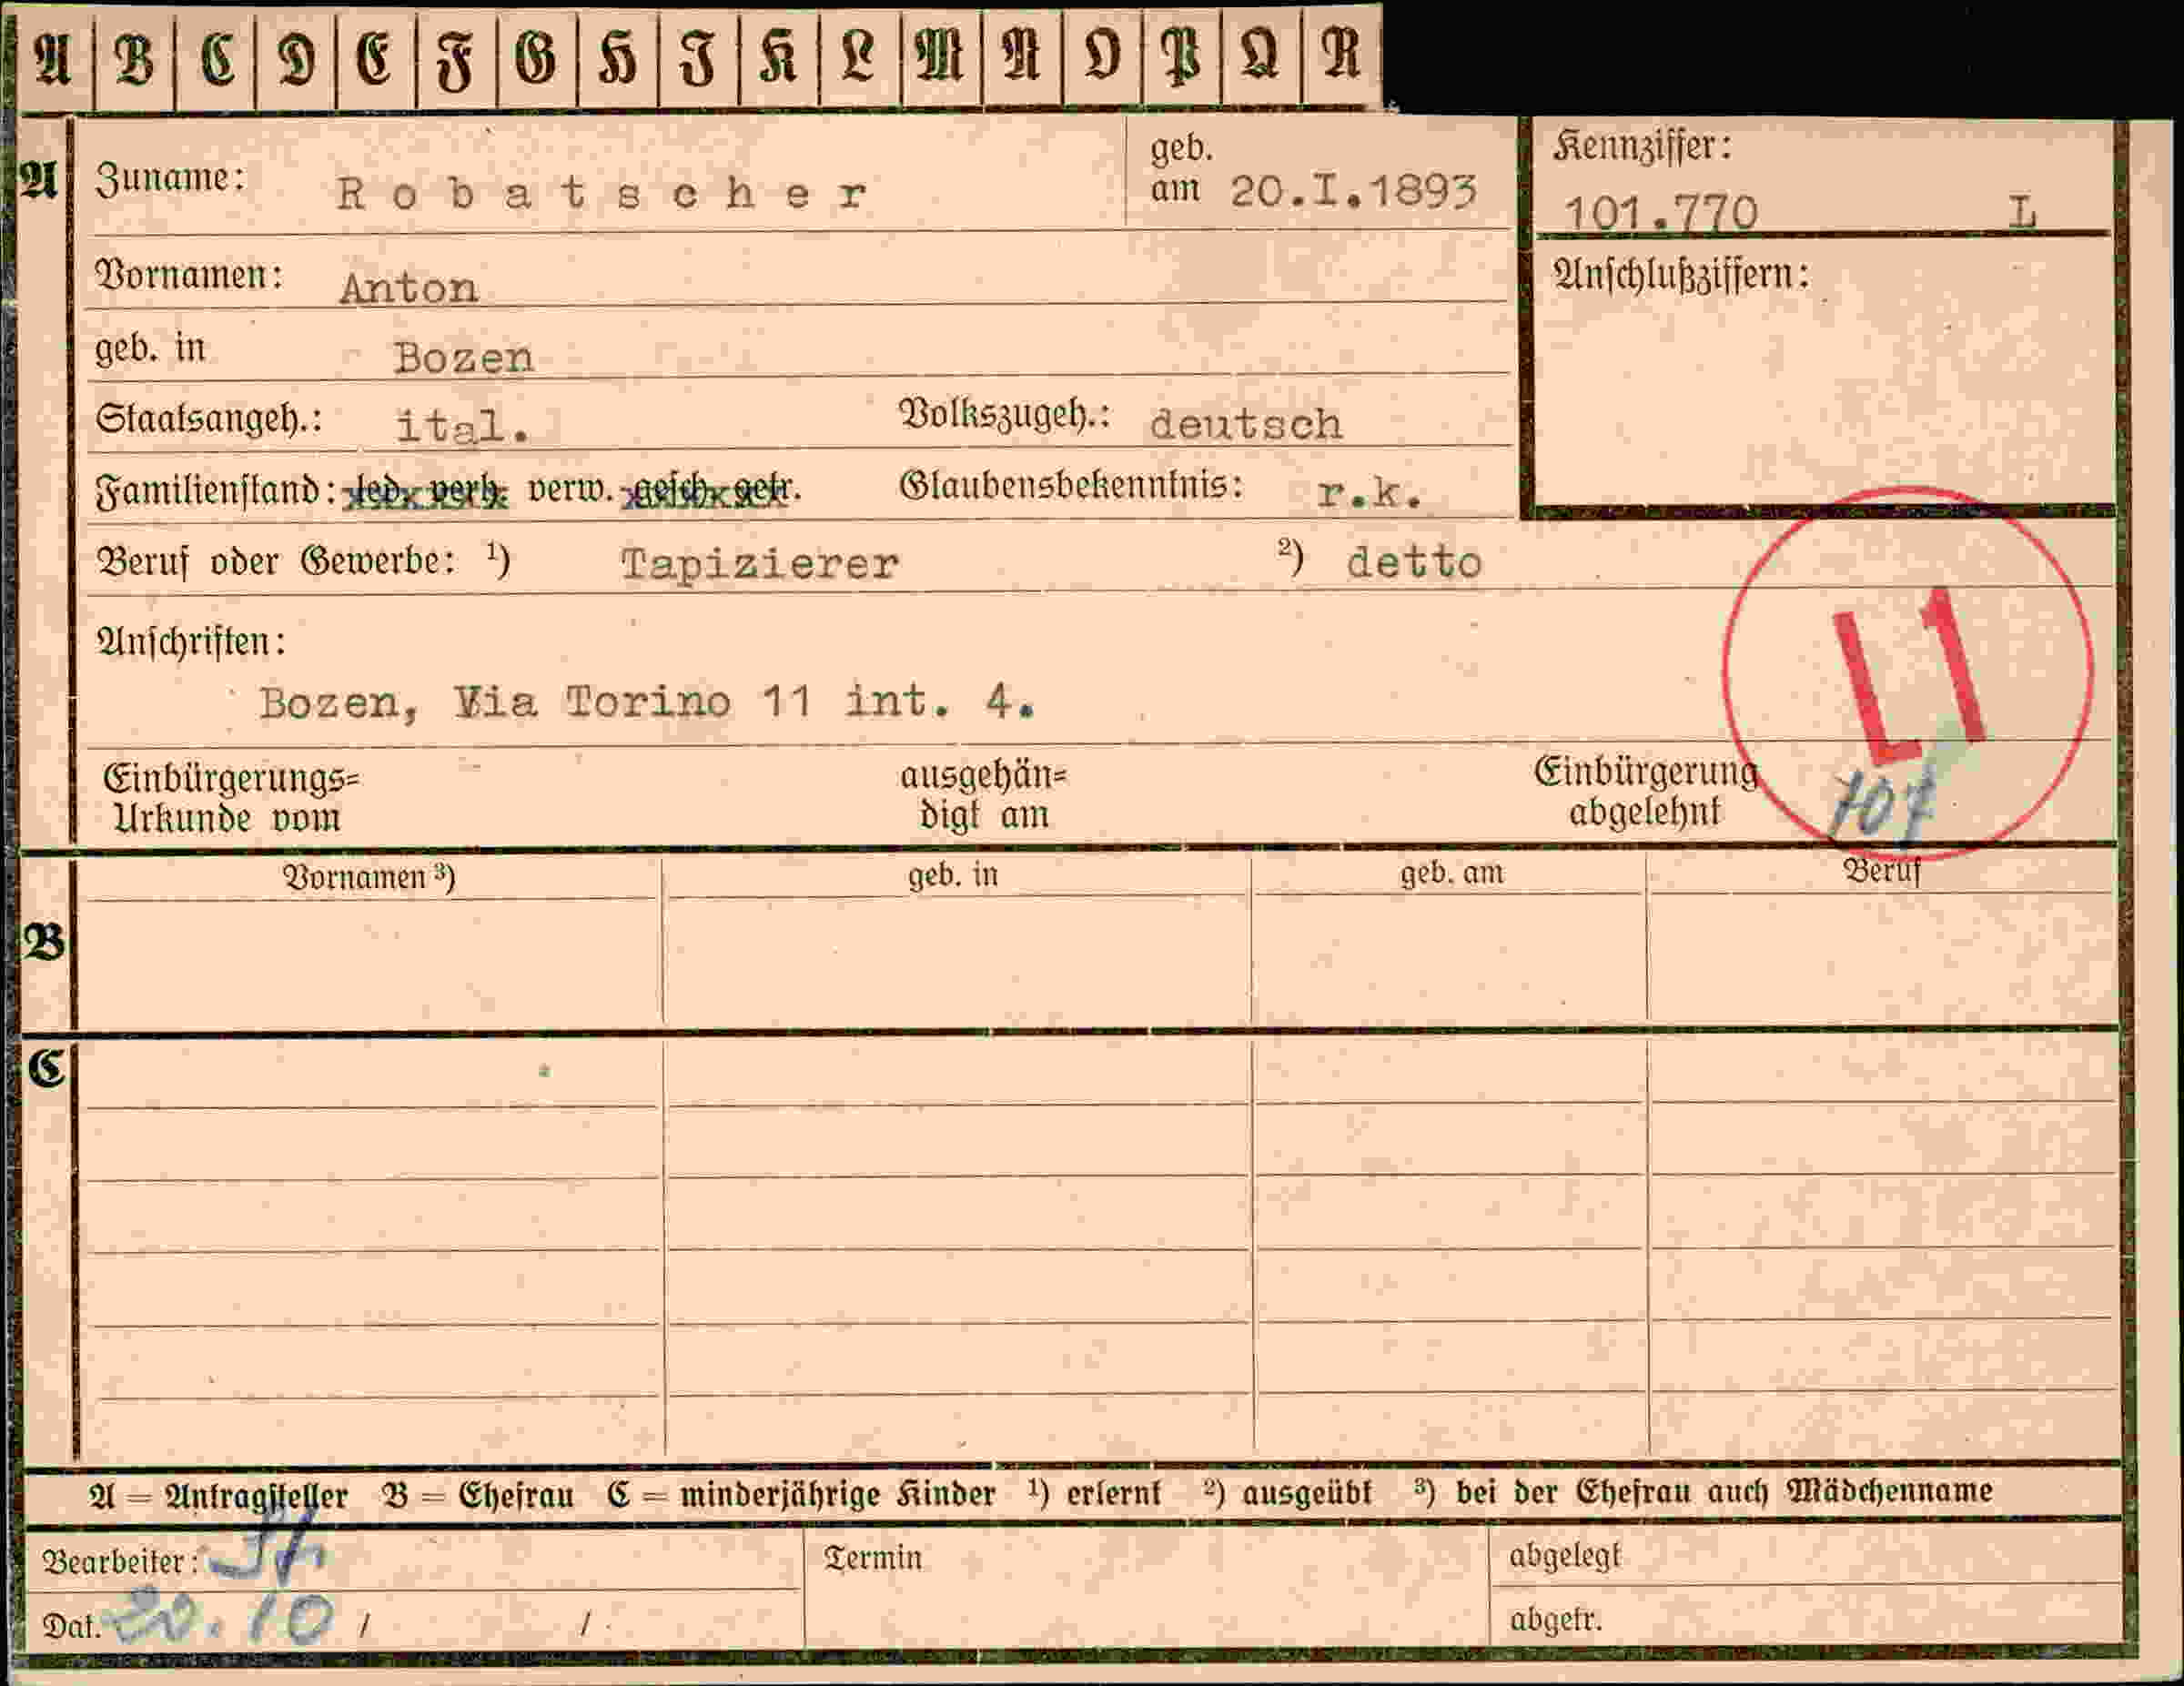 A B C D E F G H I K L M N O P Q R
A Zuname: Robatscher geb. am 20.I.1893
Kennziffer: 101.770 L
Vornamen: Anton
Anschlußziffern:
geb. in Bozen
Staatsangeh.: ital. Volkszugeh.: deutsch
Familienstand: led. verh. verw. gesch. getr. Glaubensbekenntnis: r.k.
Beruf oder Gewerbe: ¹) Tapizierer ²) detto
L1
Anschriften:
Bozen, Via Torino 11 int. 4.
Einbürgerungs= ausgehän= Einbürgerung
Urkunde vom digt am abgelehnt
107
Vornamen ³) geb. in geb. am Beruf
B
C
A = Antragsteller B = Ehefrau C = minderjährige Kinder ¹) erlernt ²) ausgeübt ³) bei der Ehefrau auch Mädchenname
Bearbeiter: Termin abgelegt
Dat. 20.10 / / abgetr.